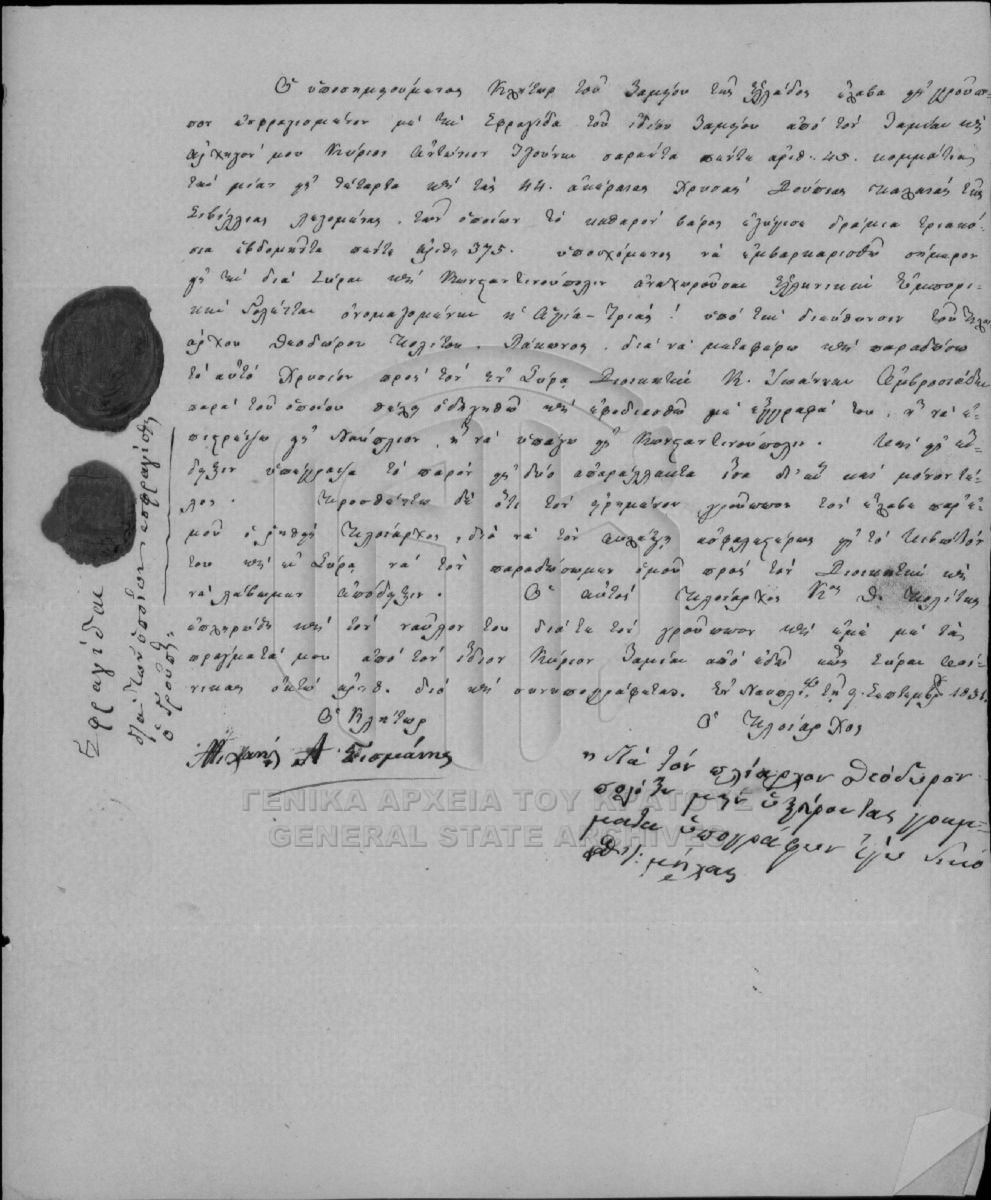 Ὁ ὑποσημειούμενος Κλήτωρ τοῦ Ταμείου τῆς Ἑλλάδος ἔλαβα εἰς γρούπ-
πον ἐσφραγισμένον μὲ τὴν Σφραγίδα τοῦ ἰδίου Ταμείου ἀπὸ τὸν Ταμίαν καὶ
ἀρχηγόν μου Κύριον Ἀντώνιον σαράντα πέντε ἀριθ. 45. κομμάτια
τὸ μίαν εἰς τέταρτα καὶ τὰς 44. ἀκέραιας Χρυσὰς Δούπιας παλαιὰς τῆς
Σεβίλλιας λεγομένας, τῶν ὁποίων τὸ καθαρὸν βάρος ἐζύγισε δράμια τριακό-
σια ἑβδομῆντα πέντε ἀριθ. 375. ὑποσχόμενος νὰ ἐμβαρκαρισθῶ σήμερον
εἰς τὴν διὰ Σύραν καὶ Κωνσταντινούπολιν ἀναχωροῦσαν Ἑλληνικὴν ἐμπορι-
κὴν Γολέτταν ὀνομαζομένην ἡ Ἁγία-Τριάς! ὑπὸ τὴν διεύθυνσιν τοῦ Πλοι-
άρχου Θεοδώρου Πολίτου. Λάκωνος. διὰ νὰ μεταφέρω καὶ παραδώσω
τὸ αὐτὸ Χρυσίον πρὸς τὸν ἐν Σύρᾳ Διοικητὴν Κ. Ἰωάννην Ἀμβροσιάδην
παρὰ τοῦ ὁποίου θέλει ὁδηγηθῶ καὶ ἐφοδιασθῶ μὲ ἔγγραφά του, ἢ νὰ ἐ-
πιστρέψω εἰς Ναύπλιον, ἢ νὰ ὑπάγω εἰς Κωνσταντινούπολιν. Καὶ εἰς ἔν-
δειξιν ὑπέγραψα τὸ παρὸν εἰς δύο ἀπαράλλακτα ἴσα δι' ἓν καὶ μόνον τέ-
λος. Προσθέττω δὲ ὅτι τὸν εἰρημένον γρούππον τὸν ἔλαβε παρ' ἐ-
μοῦ ὁ ῥηθεὶς Πλοίαρχος, διὰ νὰ τὸν φυλάξῃ ἀσφαλεστέρως εἰς τὸ κιβώτιόν
του καὶ εἰς Σύρᾳ νὰ τὸν παραδώσωμεν ὁμοῦ πρὸς τὸν Διοικητὴν καὶ
νὰ λάβωμεν ἀπόδειξιν. Ὁ αὐτὸς Πλοίαρχος Κος Θ. Πολίτης
ἐπληρώθη καὶ τὸν ναῦλον του διὰ τε τὸν γρούππον καὶ ἐμὲ μὲ τὰ
πράγματά μου ἀπὸ τὸν ἴδιον Κύριον Ταμίαν ἀπὸ ἐδῶ ἕως Σύραν φοί-
νικας ὀκτὼ ἀριθ. διὸ καὶ συνυπογράφεται. Ἐν Ναυπλίῳ τῇ 9. Σεπτεμβρ 1831.
Ὁ Κλήτωρ
Ὁ Πλοίαρχος
Μιχαὴλ Α
Διὰ τὸν πλίαρχον Θεόδωρον
πολίτην μὴν ἠξεύροντας γράμ-
ματα ὑπογράφων ἐγὼ νικό
Σφραγίδαι
διὰ τῶν ὁποίων ἐσφραγίσθη
ὁ Γρούππος
ΓΕΝΙΚΑ ΑΡΧΕΙΑ ΤΟΥ ΚΡΑΤΟΥΣ
GENERAL STATE ARCHIVES